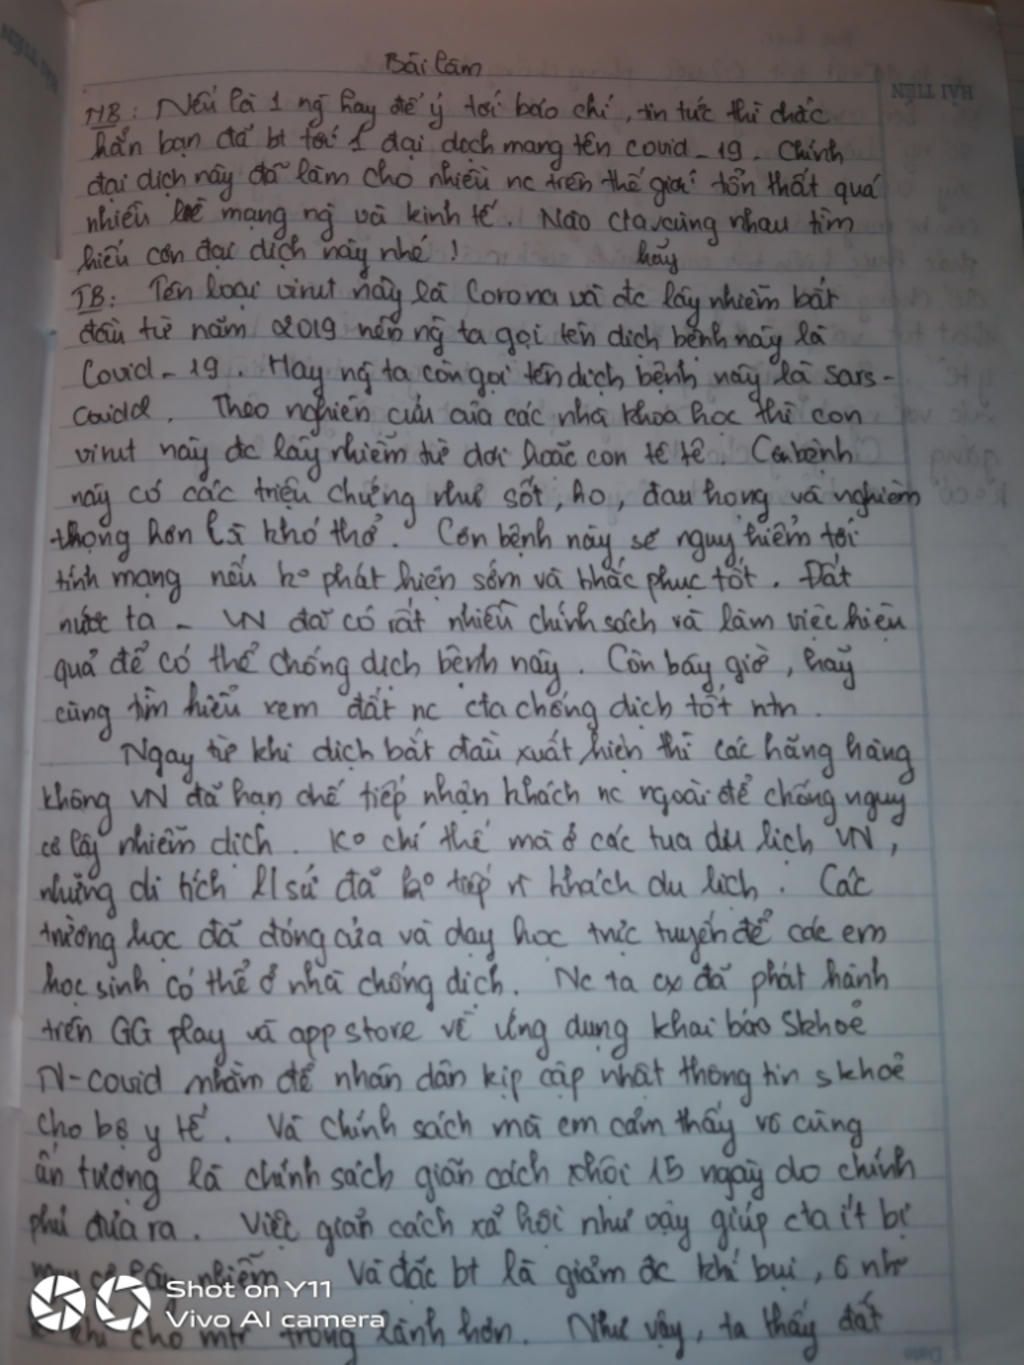 Bài làm
HẢI TIẾN
MB: Nếu là 1 ng hay để ý tới báo chí, tin tức thì chắc
hẳn bạn đã bt tới 1 đại dịch mang tên covid-19. Chính
đại dịch này đã làm cho nhiều nc trên thế giới tổn thất quá
nhiều về mạng ng và kinh tế. Nào cta cùng nhau tìm
hiểu cơn đại dịch này nhé! hãy
TB: Tên loại virut này là Corona và đc lây nhiễm bắt
đầu từ năm 2019 nên ng ta gọi tên dịch bệnh này là
Covid-19. Hay ng ta còn gọi tên dịch bệnh này là Sars-
Covid2. Theo nghiên cứu của các nhà khoa học thì con
virut này đc lây nhiễm từ dơi hoặc con tê tê. Căn bệnh
này có các triệu chứng như sốt, ho, đau họng và nghiêm
trọng hơn là khó thở. Cơn bệnh này sẽ nguy hiểm tới
tính mạng nếu ko phát hiện sớm và khắc phục tốt. Đất
nước ta - VN đã có rất nhiều chính sách và làm việc hiệu
quả để có thể chống dịch bệnh này. Còn bây giờ, hãy
cùng tìm hiểu xem đất nc cta chống dịch tốt ntn.
Ngay từ khi dịch bắt đầu xuất hiện thì các hãng hàng
không VN đã hạn chế tiếp nhận khách nc ngoài để chống nguy
cơ lây nhiễm dịch. Ko chỉ thế mà ở các tua du lịch VN,
những di tích lịsử đã ko tiếp khách du lịch. Các
trường học đã đóng cửa và dạy học trực tuyến để các em
học sinh có thể ở nhà chống dịch. Nc ta cx đã phát hành
trên GG play và app store về ứng dụng khai báo Skhoẻ
N-covid nhằm để nhân dân kịp cập nhật thông tin skhoẻ
cho bộ y tế. Và chính sách mà em cảm thấy vô cùng
ấn tượng là chính sách giãn cách xhội 15 ngày do chính
phủ đưa ra. Việc giãn cách xã hội như vậy giúp cta ít bị
cơ lây nhiễm. Và đặc bt là giảm đc khí bụi, ô nh
khí cho mtr trong lành hơn. Như vậy, ta thấy đất
Shot on Y11
Vivo AI camera
Date